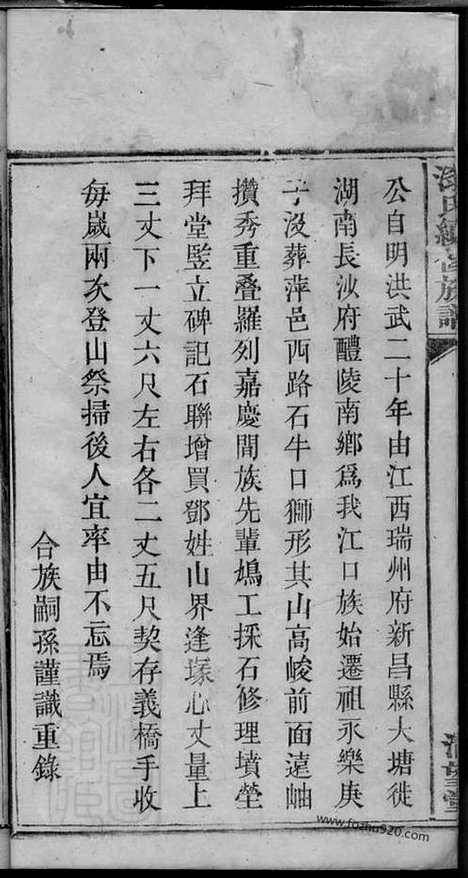 公自明洪武二十年由江西瑞州府新昌縣大塘徙
湖南長沙府醴陵南鄉爲我江口族始遷祖永樂庚
子沒葬萍邑西路石牛口獅形其山高峻前面遠岫
攢秀重疊羅列嘉慶間族先輩鳩工採石修理墳塋
拜堂豎立碑記石聯增買鄧姓山界逢塚心丈量上
三丈下一丈六尺左右各二丈五尺契存義橋手收
每歲兩次登山祭掃後人宜率由不忘焉
合族嗣孫謹識重錄
www.fozhu920.com